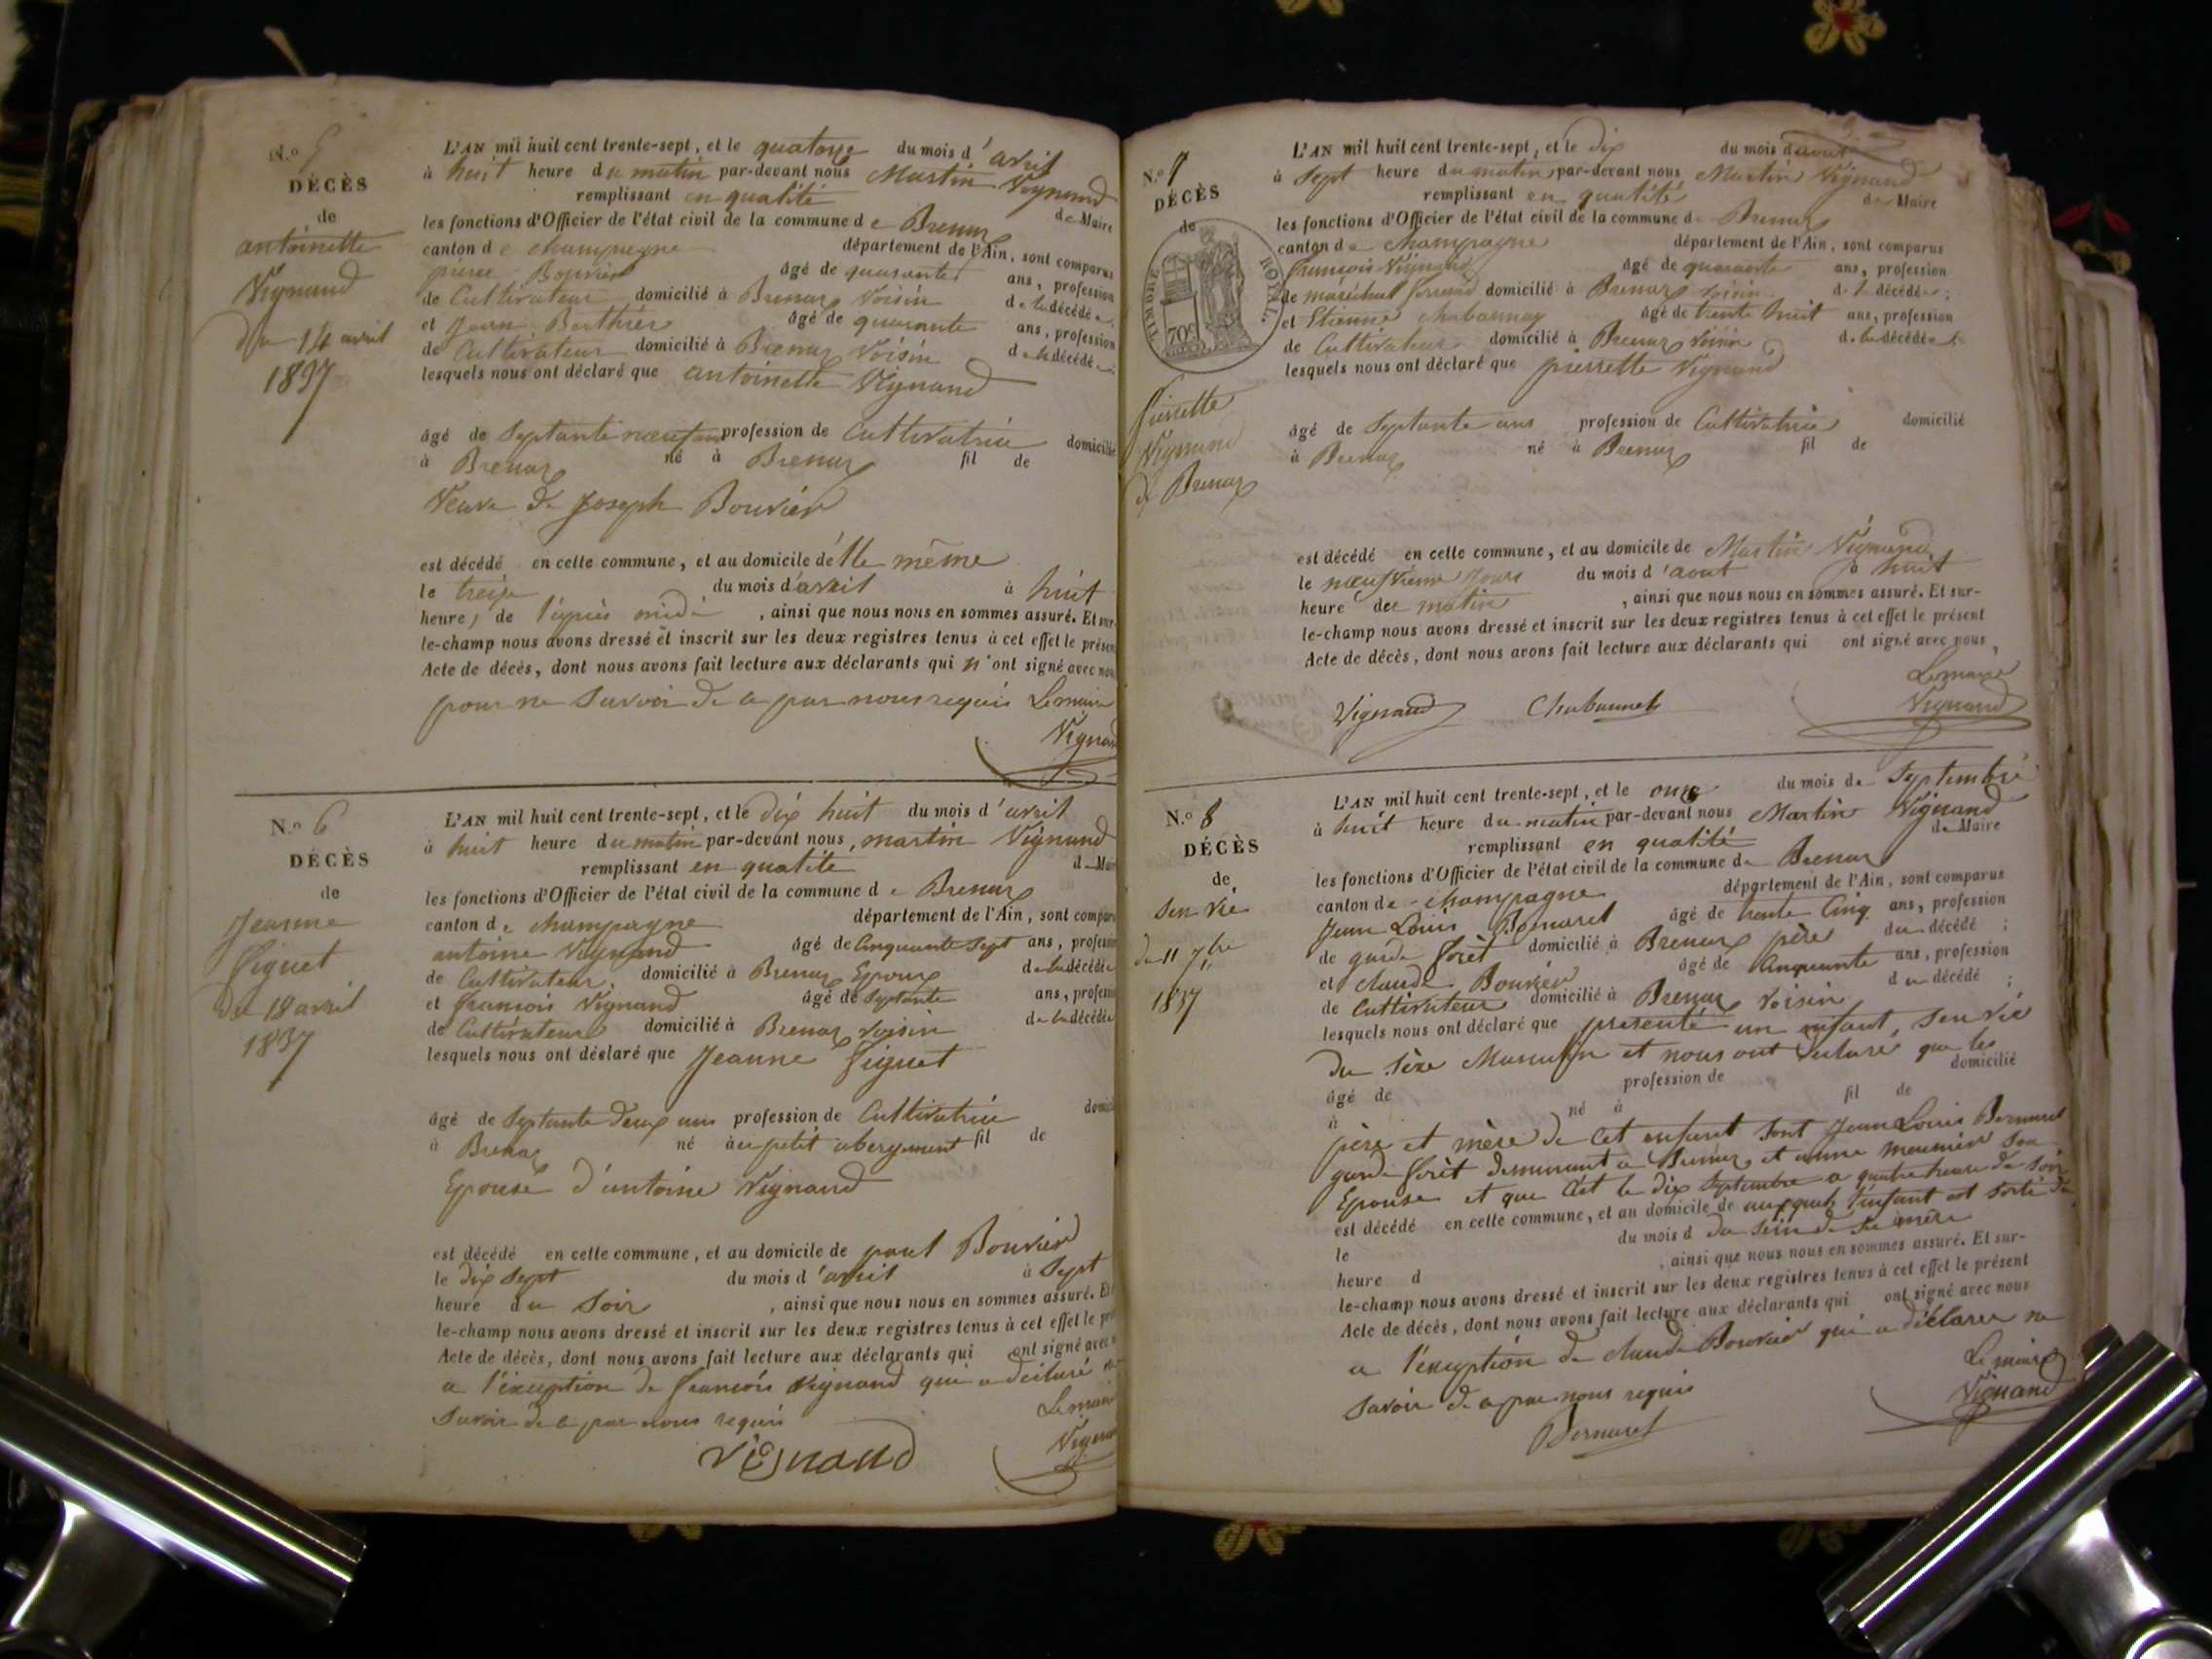 N.o 5
DÉCÈS
de
antoinette
Vignand
du 14 avril
1837
L'AN mil huit cent trente-sept, et le quatorze du mois d'avril
à huit heure du matin par-devant nous Martin Vignand
remplissant en qualité de Maire
les fonctions d'Officier de l'état civil de la commune de Brenaz
canton de champagne département de l'Ain, sont comparus
pierre Bouvier âgé de quarante ans, profession
de Cultivateur domicilié à Brenaz Voisin de la décédée
et Jean Berthier âgé de quarante ans, profession
de Cultivateur domicilié à Brenaz Voisin de la décédée
lesquels nous ont déclaré que antoinette Vignand
âgé de Septante nœuf ans profession de Cultivatrice domicilié
à Brenaz né à Brenaz fil de
Veuve de Joseph Bouvier
est décédé en cette commune, et au domicile d'elle même
le treize du mois d'avril à huit
heure, de l'après midi, ainsi que nous nous en sommes assuré. Et sur-
le-champ nous avons dressé et inscrit sur les deux registres tenus à cet effet le présen
Acte de décès, dont nous avons fait lecture aux déclarants qui n'ont signé avec nou
pour ne Savoir de a par nous requis Le maire
Vignand
N.o 6
DÉCÈS
de
Jeanne
Figuet
du 18 avril
1837
L'AN mil huit cent trente-sept, et le dix huit du mois d'avril
à huit heure du matin par-devant nous, martin Vignand
remplissant en qualité d Mair
les fonctions d'Officier de l'état civil de la commune de Brenaz
canton de champagne département de l'Ain, sont compar
antoine Vignand âgé de Cinquante Sept ans, profession
de Cultivateur domicilié à Brenaz Epoux de la décédée
et francois Vignand âgé de Septante ans, profess
de Cultivateur domicilié à Brenaz Voisin de la décédée
lesquels nous ont déclaré que Jeanne Figuet
âgé de Septante Deux ans profession de Cultivatrice domici
à Brenaz né au petit abergement fil de
Epouse d'antoine Vignand
est décédé en cette commune, et au domicile de paul Bouvier
le dix Sept du mois d'avril à Sept
heure du Soir, ainsi que nous nous en sommes assuré. Et
le-champ nous avons dressé et inscrit sur les deux registres tenus à cet effet le pr
Acte de décès, dont nous avons fait lecture aux déclarants qui ont signé avec
a l'éxception de francois Vignand qui a déclaré ne
Savoir de a par nous requis Le maire
Vignand Vignand
N.o 7
DÉCÈS
de
TIMBRE ROYAL.
70c
pierrette
Vignand
de Brenaz
L'AN mil huit cent trente-sept, et le dix du mois d'aout
à Sept heure du matin par-devant nous Martin Vignand
remplissant en qualité de Maire
les fonctions d'Officier de l'état civil de la commune de Brenaz
canton de champagne département de l'Ain, sont comparus
francois Vignand âgé de quarante ans, profession
de maréchal ferrand domicilié à Brenaz voisin de la décédée;
et Etienne chabannay âgé de trente huit ans, profession
de Cultivateur domicilié à Brenaz voisin de la décédée
lesquels nous ont déclaré que pierrette Vignand
âgé de Septante ans profession de Cultivatrice domicilié
à Brenaz né à Brenaz fil de
est décédé en cette commune, et au domicile de Martin Vignand
le nœufvieme Jours du mois d'aout à huit
heure du matin, ainsi que nous nous en sommes assuré. Et sur-
le-champ nous avons dressé et inscrit sur les deux registres tenus à cet effet le présent
Acte de décès, dont nous avons fait lecture aux déclarants qui ont signé avec nous,
Le maire
Vignand Vignand
N.o 8
DÉCÈS
de
Sen vie
du 11 7bre
1837
L'AN mil huit cent trente-sept, et le onze du mois de Septembre
à huit heure du matin par-devant nous Martin Vignand
remplissant en qualité de Maire
les fonctions d'Officier de l'état civil de la commune de Brenaz
canton de champagne département de l'Ain, sont comparus
Jean Louis Bornaret âgé de trente Cinq ans, profession
de garde forêt domicilié à Brenaz père du décédé;
et claude Bouvier âgé de Cinquante ans, profession
de Cultivateur domicilié à Brenaz voisin du décédé;
lesquels nous ont déclaré que presenté un enfant, Sen vie
du sèxe Masculin et nous ont déclaré que les
âgé de profession de domicilié
à né à fil de
père et mère de Cet enfant Sont Jean Louis Bornaret
garde forêt demeurant a Brenaz et anne meunier Son
Epouse et que C'est le dix Septembre a quatre heure du Soir
est décédé en cette commune, et au domicile de l'enfant est Sorti
le du mois d du Sein de Sa mère
heure d, ainsi que nous nous en sommes assuré. Et sur-
le-champ nous avons dressé et inscrit sur les deux registres tenus à cet effet le présent
Acte de décès, dont nous avons fait lecture aux déclarants qui ont signé avec nous
a l'éxception de claude Bouvier qui a déclarer ne
Savoir de a par nous requis Le maire
Bornaret Vignand